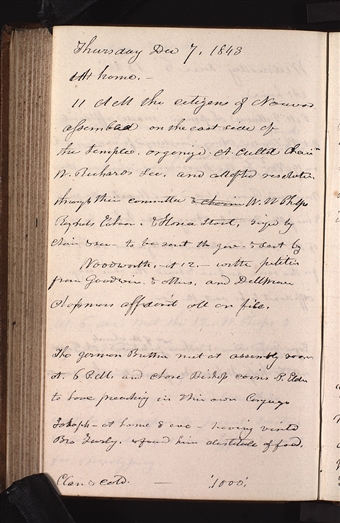 Thursday Dec 7, 1843
At home. —
11 A M the citizens of Nauvoo
assembled on the east side of
the Temple, organized A Cutler Chair
W. Richards Sec, and adopted resolution
through their committee W. W. Phelps
Reynolds Cahoon & Hosea Stout, signed by
chair & sec — to be sent the gov. & sent by
Woodworth, at 12 — with the petition
from Goodwin & others, and Dellmore
Chapmans affidavit all on file.
The german Brethren met at assembly room
at 6 P.M. and chose Bishop P. Elder
to have preaching in their own
Joseph — at home & eve — having visited
Bro & found him destitute of food.
Clear & cold. — "1000"